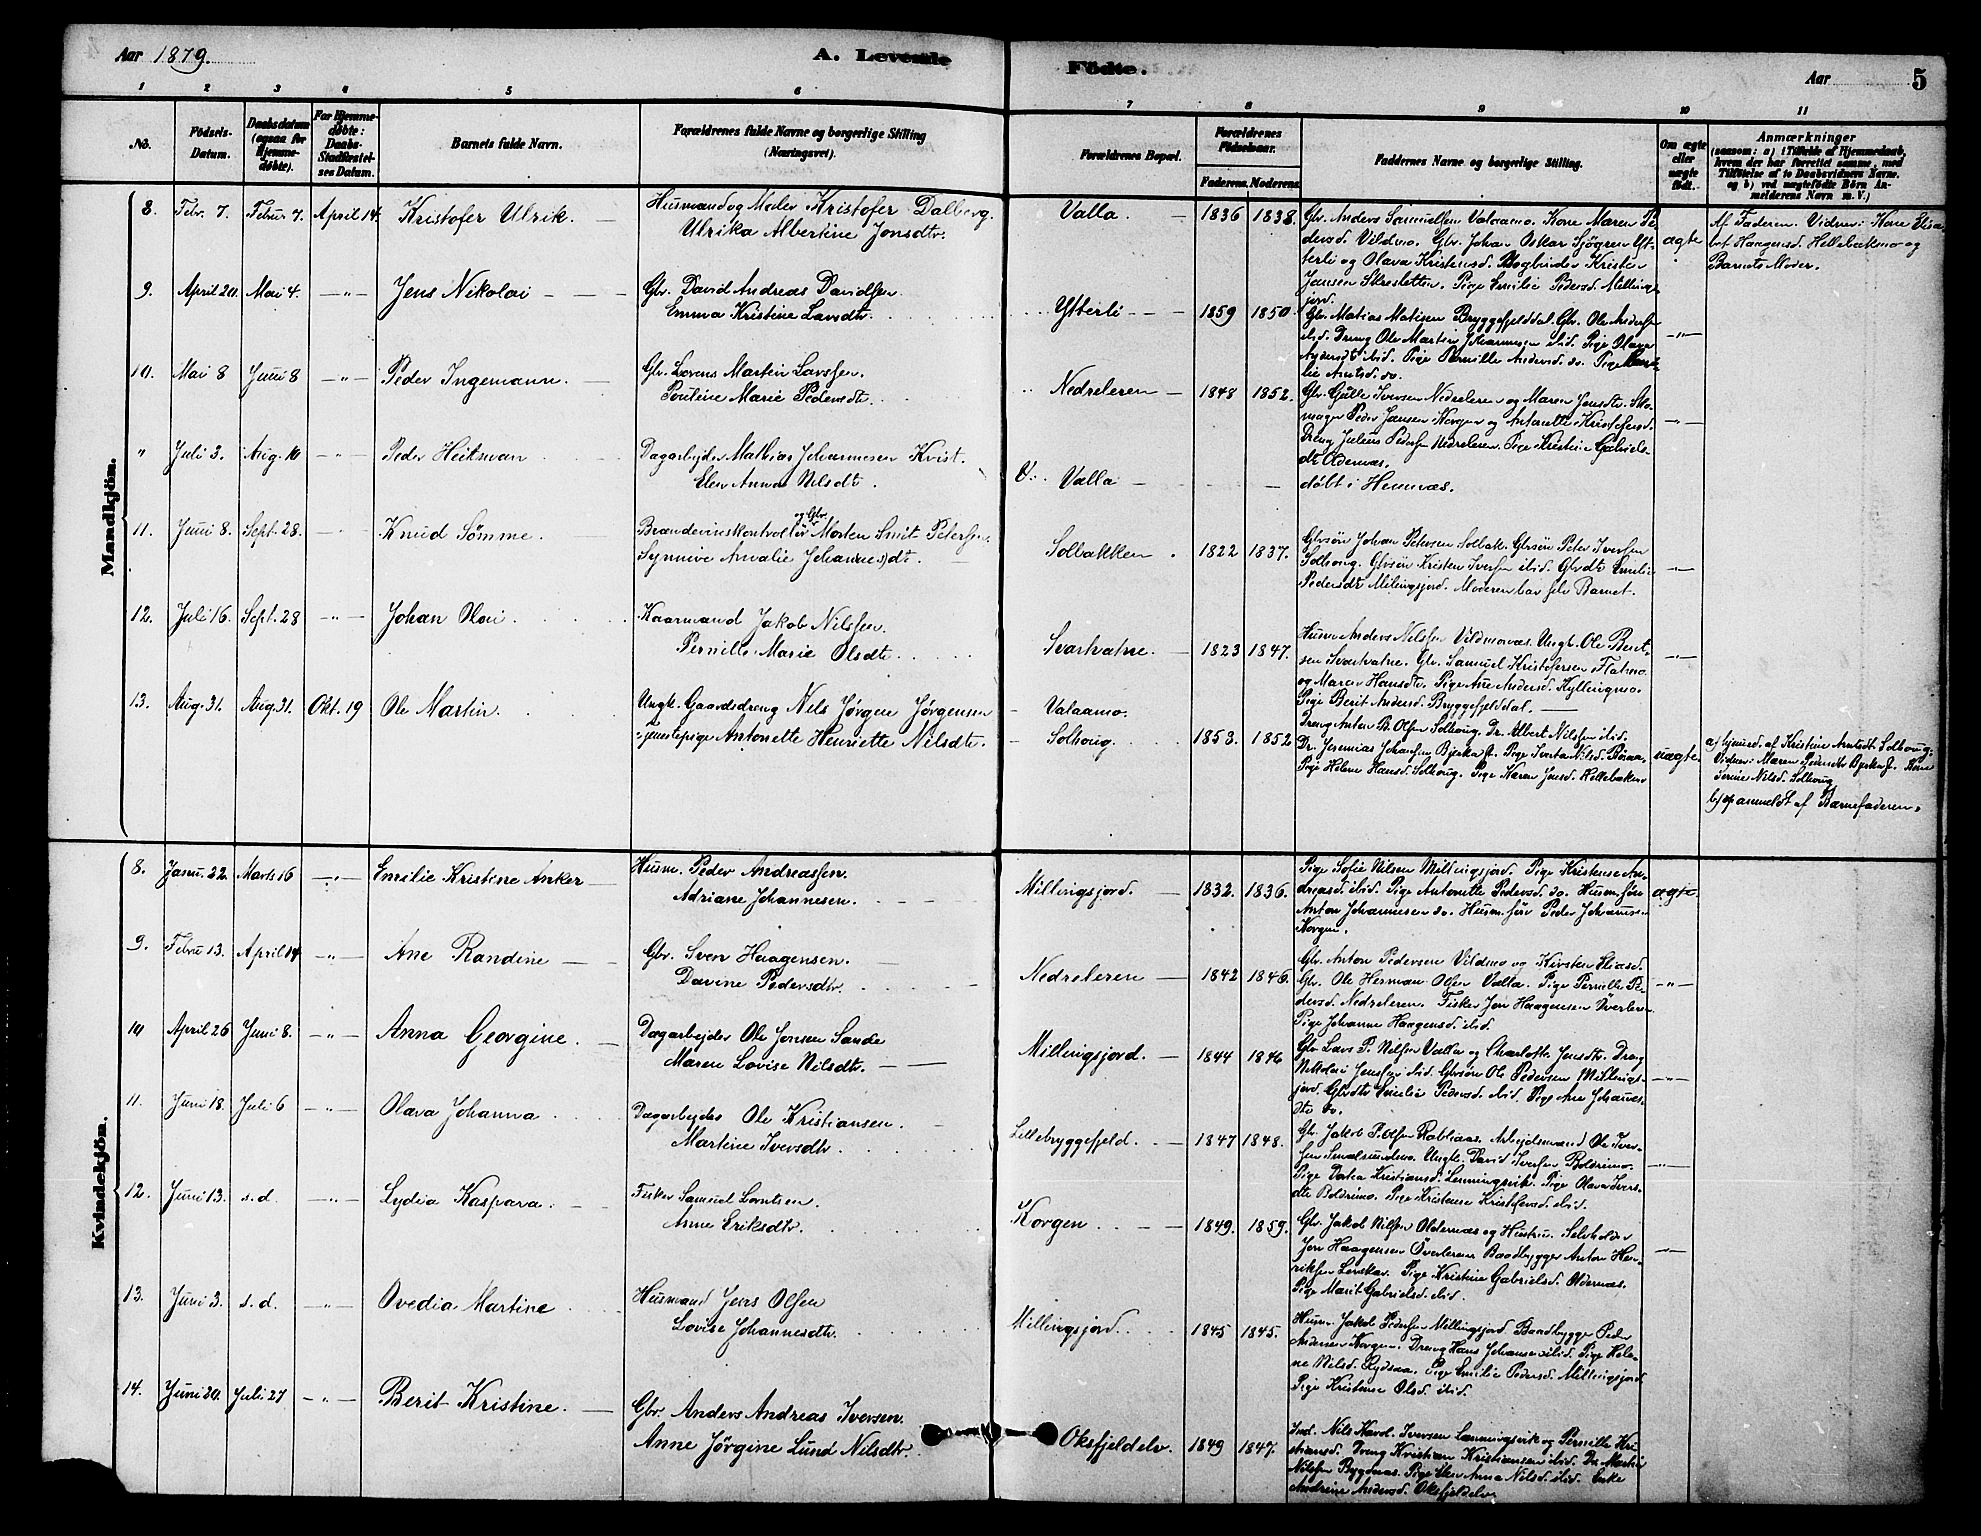 Aar 1879.
A. Levende
Födte.
Aar
5
1 2 3 4 5 6 7 8 9 10 11
No.
Födsels-
Datum.
Daabsdatum
(ogsaa for
Hjemme-
døbte).
For Hjemme-
døbte:
Daabs-
Stadfæstel-
ses Datum.
Barnets fulde Navn.
Forældrenes fulde Navne og borgerlige Stilling
(Næringsvei).
Forældrenes Bopæl.
Forældrenes
Födselsaar.
Faderens. Moderens.
Faddernes Navne og borgerlige Stilling.
Om ægte
eller
uægte
født.
Anmærkninger
(saasom: a) i Tilfælde af Hjemmedaab,
hvem der har forrettet samme, med
Tilföielse af to Daabsvidners Navne.
og b) ved uægtefødte Börn An-
melderens Navn m. V.)
Mandkjön.
8. Febr. 7. Februr 7. April 14. Kristofer Ulrik.
Husmand og Maler Kristofer Dalberg.
Ulrika Albertine Jonsdtr.
Valla. 1836 1838.
Gbr. Anders Samuelsen Valaamo. Kone Maren Pe-
dersd. Vildmo. Gbr. Johan Oskar Sjögren Yt-
terli og Olava Kristensd. Bogbinder Kristen
Jansen Pige Emilie Pedersd. Millings-
jord.
ægte
Af Faderen. Vidner: Kone Elisa-
bet Haagensd. Hellebækmo og
Barnets Moder.
9. April 20. Mai 4. -"- Jens Nikolai
Gbr. David Andreas Davidsen.
Emma Kristine Larsdtr.
Ytterli 1859 1850.
Gbr. Matias Matisen Bryggefjelddal. Gbr. Ole Andersen
ibid. Dreng Ole Martin Johannesen ibid. Pige Olava
Andersdtr ibid. Pige Pernille Andersd. do. Pige
Arntsd. do.
-"-
10. Mai 8 Juni 8 -"- Peder Ingemann.
Gbr. Lorens Martin Larssen.
Pauline Marie Pedersdtr.
Nedreleren 1848 1852.
Gbr. Gulle Iversen Nedreleren og Maren Jonsdtr. Sko-
mager Peder Jansen Korgen og Antonette Kristofersd.
Dreng Julius Pedersen Nedreleren. Pige Kristine Gabriels-
dtr Oldernæs.
-"-
" Juli 3. Aug. 10 -"- Peder Heitman
Dagarbejder Mathias Johannesen Kvist.
Elen Anna Nilsdtr.
Valla
døbt i Hemnæs.
11. Juni 8. Sept. 28. -"- Knud Sømme.
Brændevinskontrollør og Gbr. Morten Smit Petersen.
Synnive Amalie Johannesdtr.
Solbakken. 1822 1837.
Gbrsön Johan Petersen Solbak. Gbrsön Peter Iversen
Solhoug. Gbrsön Kristen Iversen ibid. Gbrdtr Emilie
Pedersdtr Millingsjord. Moderen bar selv Barnet.
-"-
12. Juli 16. Sept. 28 -"- Johan Olai.
Kaarmand Jakob Nilssen.
Pernille Marie Olsdtr.
Svartvatne. 1823 1847.
Husm. Anders Nilssen Vildmonæs. Ungk. Ole Bent-
sen Svartvatne. Gbr. Samuel Kristofersen Flatmo
og Maren Hansdtr. Pige Ane Andersd. Kyllingmo.
Pige Berit Andersd. Bryggefjelddal.
-"-
13. Aug. 31. Aug. 31. Okt. 19 Ole Martin.
Ungk. Gaardsdreng Nils Jørgen Jørgensen
Tjenestepige Antonette Henriette Nilsdtr.
Valaamo.
Solhoug. 1853. 1852
Dreng Anton Olsen Solhoug. Dr. Albert Nilsen ibid.
Dr. Jeremias Johansen Bjerka Pige
Pige Helene Hansd. Solhoug. Pige Karen Jensd. Hellebækmo
uægte.
a) hjemd. af Kristine Arntsdtr Solhoug.
Vidner: Maren Pedersdtr Bjerka. Kone
Serine Nilsd. Solhoug
b) anmeldt af Barnefaderen.
Kvindekjön.
8. Janu. 22. Marts 16 -"- Emilie Kristine Anker
Husm. Peder Andreassen.
Adriane Johannesen.
Millingsjord. 1832. 1836.
Pige Sofie Nilsen Millingsjord. Pige Kristense An-
dreasd. ibid. Pige Antonette Pedersd. do. Husm.sön
Anton Johannesen do. Husm.sön Peder Johannesen
Korgen.
ægte.
9. Febru 13. April 14 -"- Ane Randine
Gbr. Sven Haagensen.
Davine Pedersdtr.
Nedreleren 1842 1846.
Gbr. Anton Pedersen Vildmo og Kirsten Eliasd.
Gbr. Ole Herman Olsen Valla. Pige Pernille Pe-
dersd. Nedreleren. Fisker Jon Haagensen Överleren.
Pige Johanne Haagensd. ibid.
-"-
10 April 26 Juni 8. -"- Anna Georgine.
Dagarbejder Ole Jonsen Sande
Maren Lovise Nilsdtr.
Millingsjord. 1844 1846
Gbr. Lars P. Nilsen Valla og Charlotte Jensdtr. Dreng
Nikolai Jensen ibid. Gbrsön Ole Pedersen Millings-
jord. Gbrdtr Emilie Pedersd. ibid. Pige Ane Johannes-
dtr do.
-"-
11. Juni 18. Juli 6 -"- Olava Johanna
Dagarbejder Ole Kristiansen.
Martine Iversdtr.
Lillebryggefjeld. 1847 1848.
Gbr. Jakob P. Olsen Rabliaas. Arbejdsmand Ole Iver-
sen Ungk. David Iversen Boldrimo.
Pige Kristiansd. Lenningsvik. Pige Olava Ivers-
dtr Boldrimo. Pige Kristense Kristofersd. ibid.
-"-
12. Juni 13. s.d. -"- Lydia Kaspara.
Fisker Samuel Lorntsen.
Anne Eriksdtr.
Korgen. 1849. 1859.
Gbr. Jakob Nilsen Oldernæs og Hustru. Selvholder
Jon Haagensen Överleren Baadbygger Anton Hen-
riksen Pige Kristine Gabrielsd. Oldernæs.
Pige Marit Gabrielsd. ibid.
-"-
13. Juni 3. s.d. -"- Ovedia Martine
Husmand Jens Olsen
Lovise Johannesdtr.
Millingsjord. 1845 1845.
Husm. Jakob Pedersen Millingsjord Baadbygger Peder
Andersen Korgen. Dreng Hans Johansen ibid. Pige Hele-
ne Nilsd. Rydsaa. Pige Emilie Pedersd. Millingsjord
Pige Kristense Olsd. ibid.
14. Juni 20. Juli 27 -"- Berit Kristine.
Gbr. Anders Andreas Iversen.
Anne Jörgine Lund Nilsdtr.
Oksfjeldelv. 1849 1847.
Ind. Nils Iversen Lenningsvik og Pernille Kri-
stiansd. Dreng Kristian Kristiansen ibid. Dr. Martin
Nilsen Bygdnæs. Pige Elen Anna Nilsd. ibid. Enke
Andrine Andersd. Oksfjeldelv